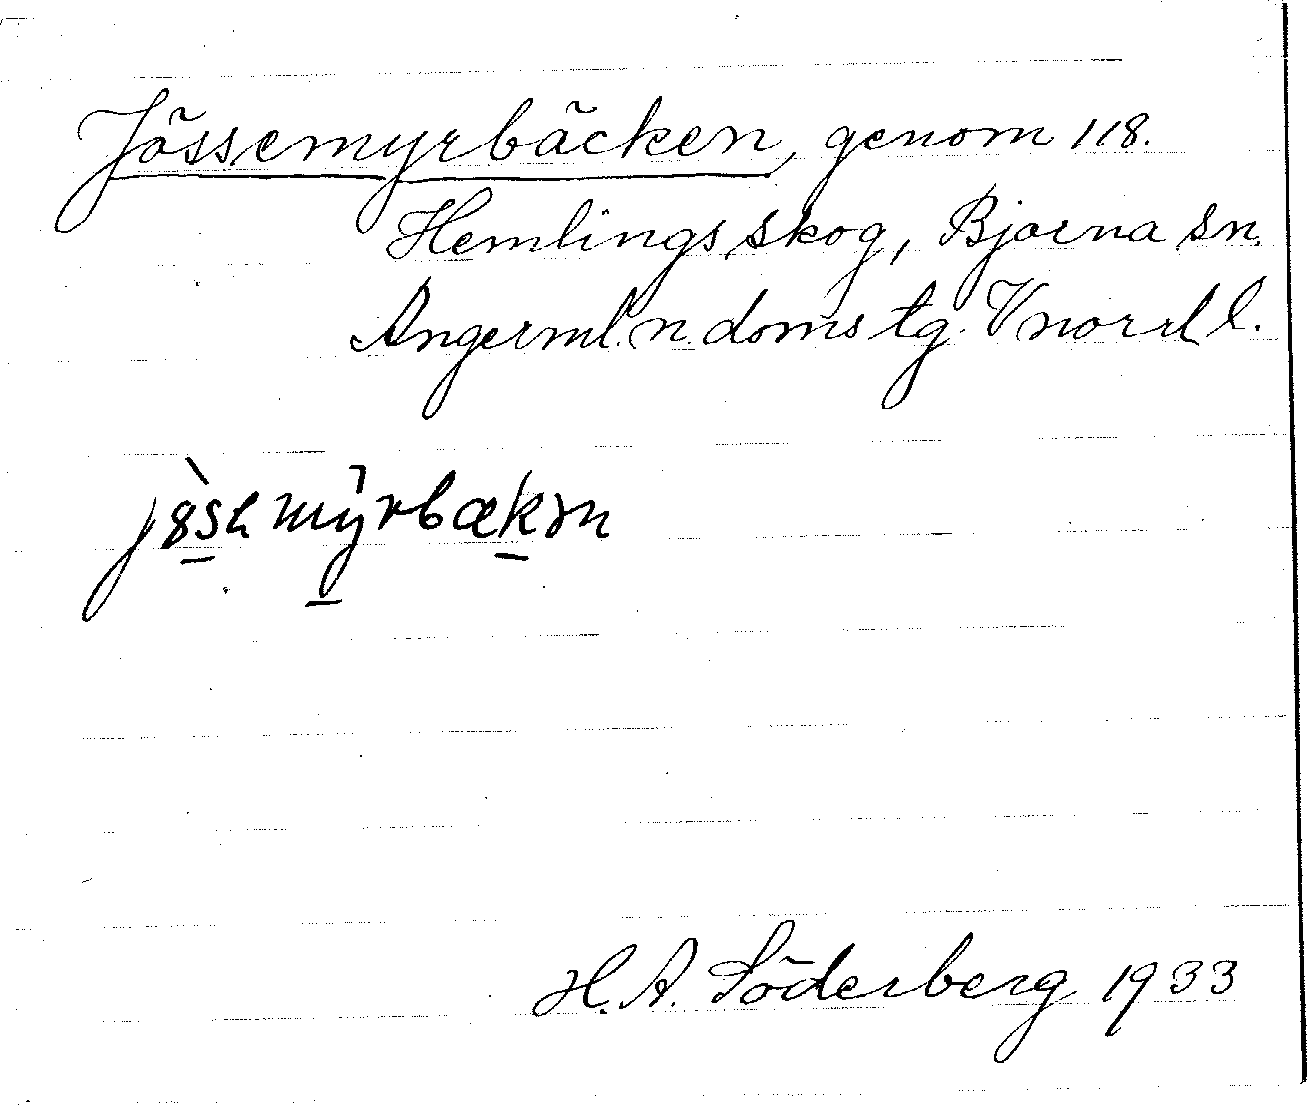 Jössemyrbäcken, genom 118.
Hemlings skog, Bjorna sn.
Angerml. n. doms tg. Vnorrl l.
H. A. Söderberg 1933